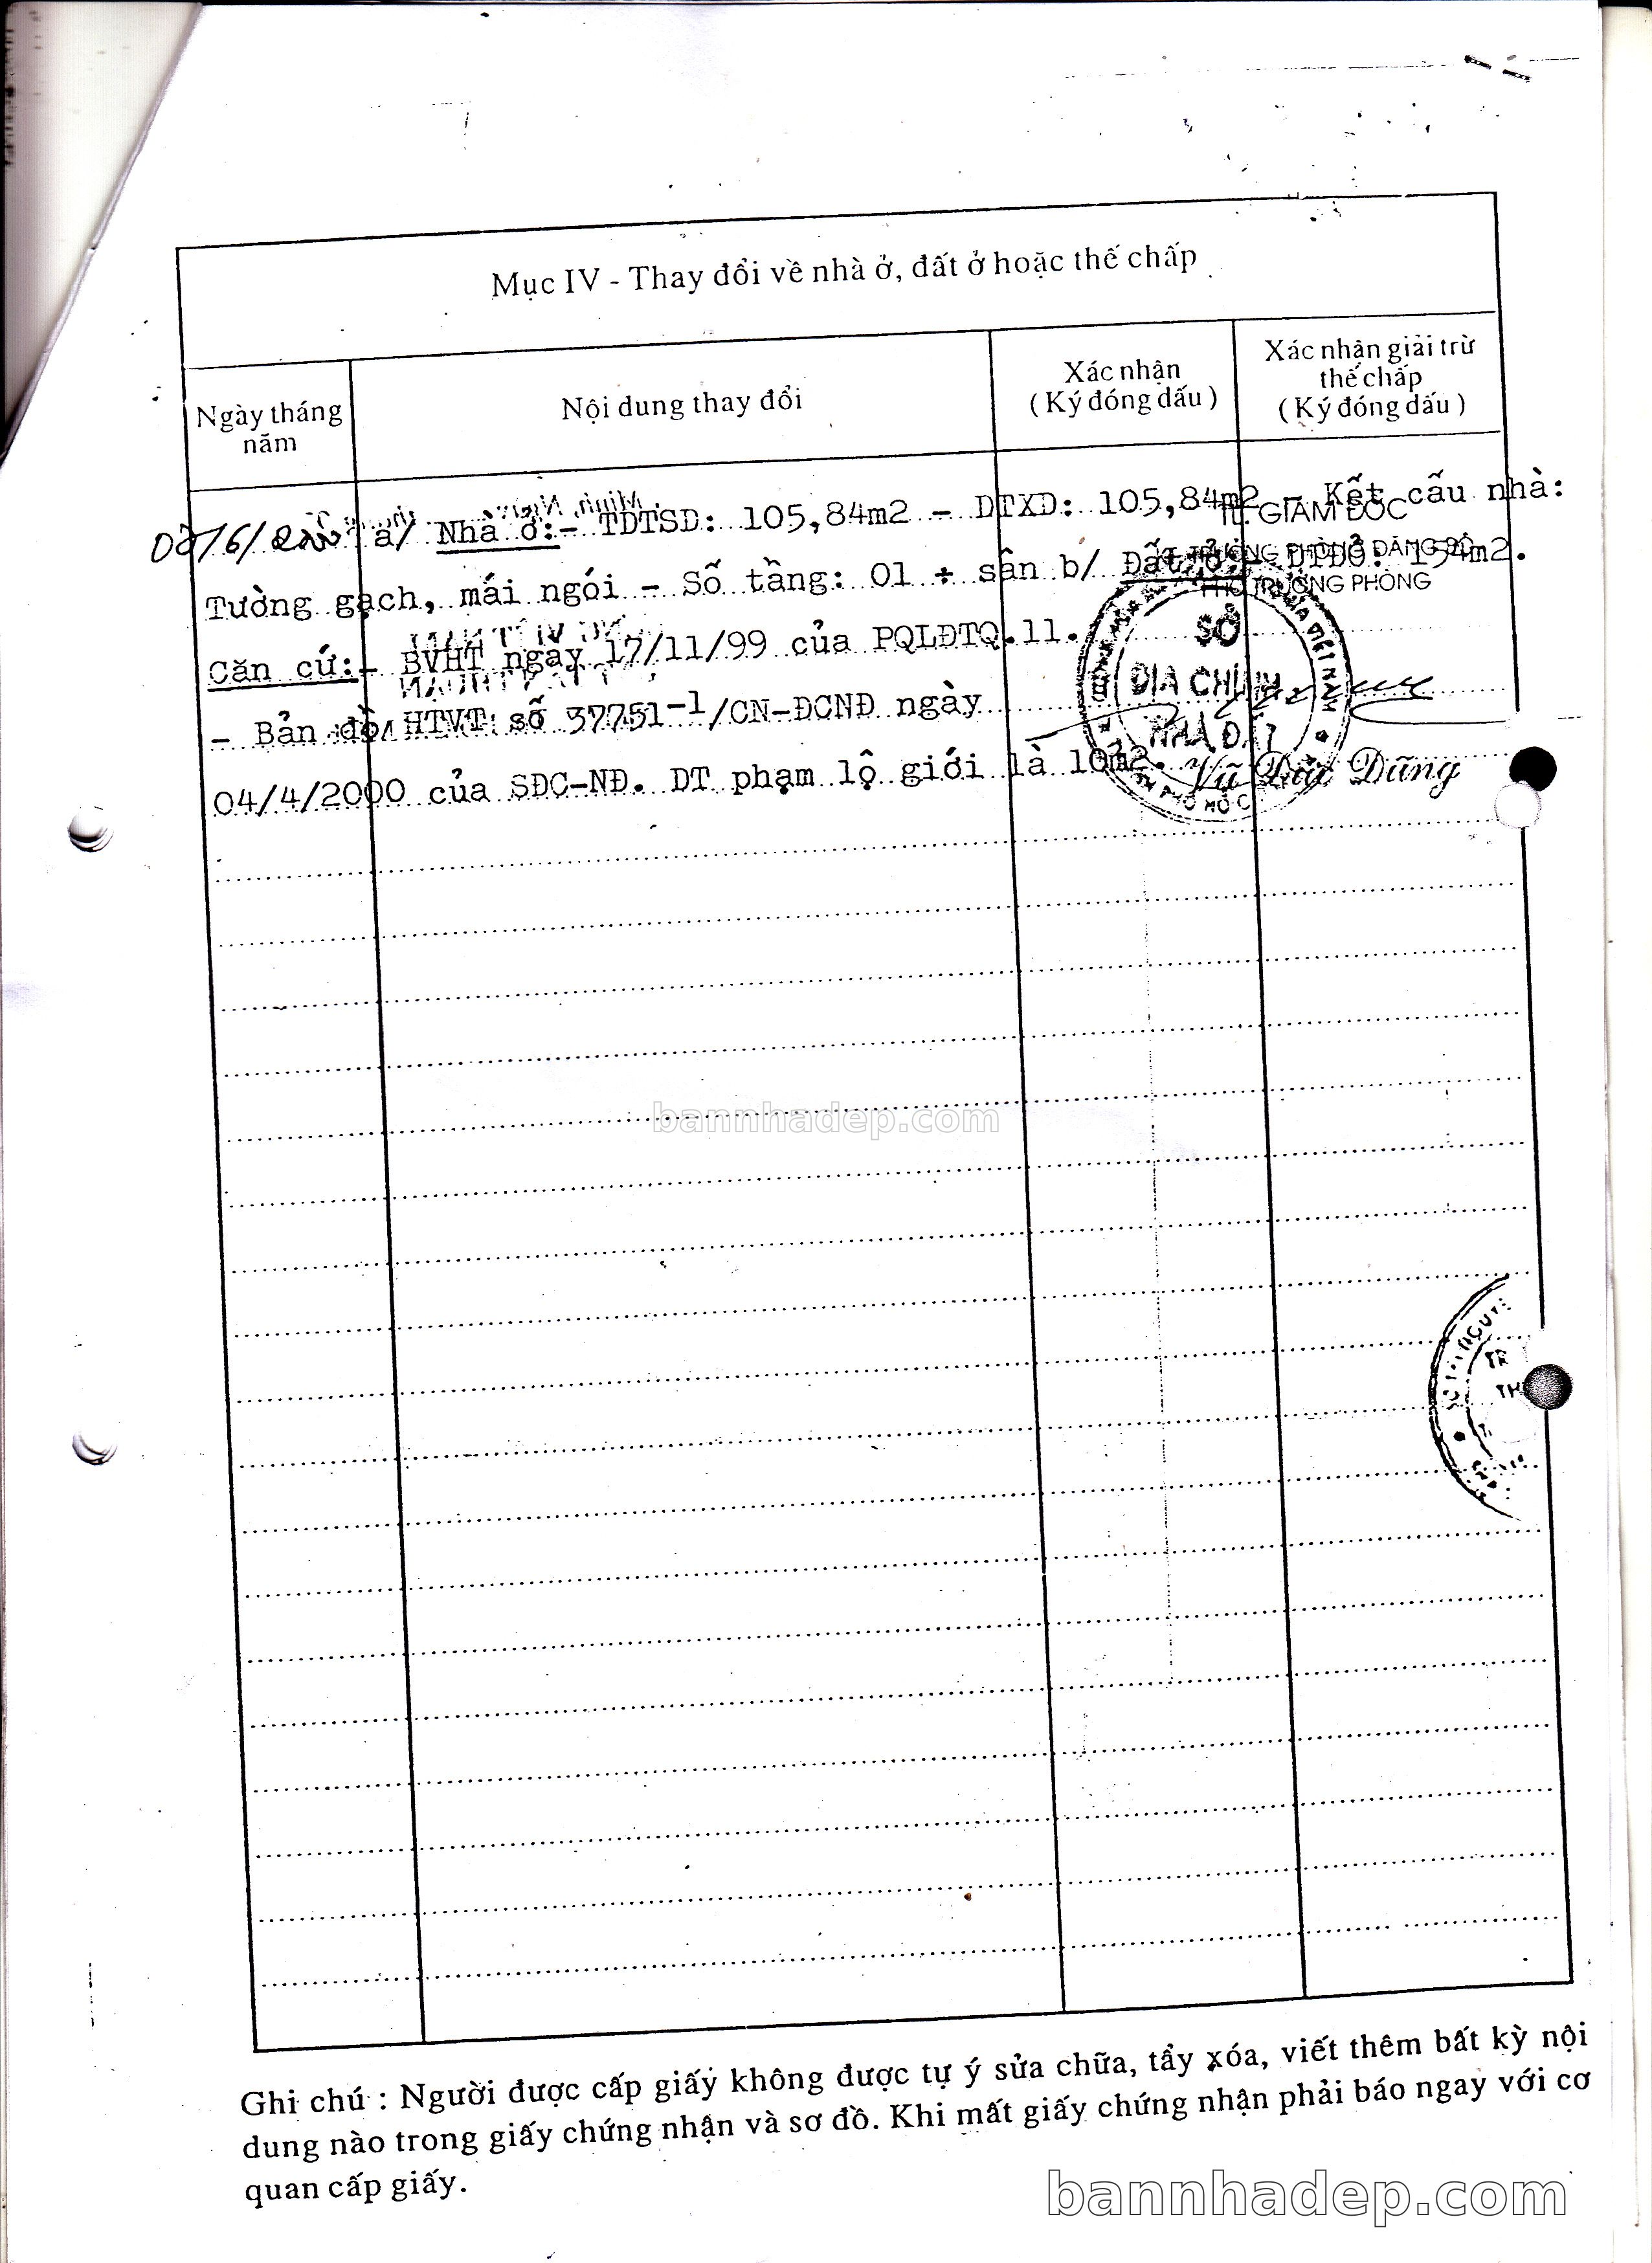 Mục IV - Thay đổi về nhà ở, đất ở hoặc thế chấp
Ngày tháng năm
Nội dung thay đổi
Xác nhận
( Ký đóng dấu )
Xác nhận giải trừ thế chấp
( Ký đóng dấu )
a/ Nhà ở:- TDTSD: 105,84m2 - DTXD: 105,84m2 - Kết cấu nhà:
Tường gạch, mái ngói - Số tầng: 01 + sân b/ Đất ở:- DTĐỞ: 194m2.
Căn cứ:- BVHT ngày 17/11/99 của PQLĐTQ.11.
- Bản đồ HTVT số 37751-1/CN-ĐCNĐ ngày
04/4/2000 của SĐC-NĐ. DT phạm lộ giới là 10m2.
TL. GIÁM ĐỐC
KT. TRƯỞNG PHÒNG ĐĂNG BỘ
PHÓ TRƯỞNG PHÒNG
SỞ
ĐỊA CHÍNH
NHÀ ĐẤT
bannhadep.com
Ghi chú : Người được cấp giấy không được tự ý sửa chữa, tẩy xóa, viết thêm bất kỳ nội
dung nào trong giấy chứng nhận và sơ đồ. Khi mất giấy chứng nhận phải báo ngay với cơ
quan cấp giấy.
bannhadep.com